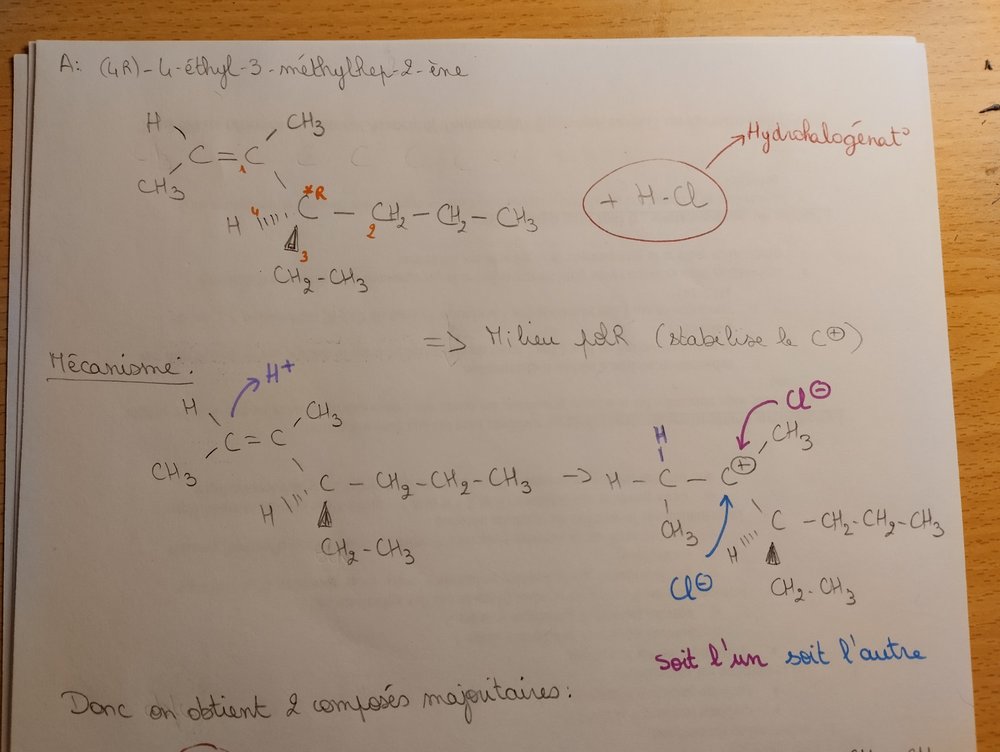 A: (4R)-4-éthyl-3-méthylhep-2-ène
H CH3
C = C
1
CH3
*R
H 4 C - CH2 - CH2 - CH3
2
3
CH2-CH3
+ H-Cl
Hydrohalogénat°
=> Milieu polR (stabilise le C⊕)
Mécanisme:
H+
H CH3
C = C
CH3
C - CH2-CH2-CH3
H
CH2-CH3
->
Cl⊖
H CH3
H - C - C⊕
CH3
C - CH2-CH2-CH3
H
Cl⊖ CH2-CH3
soit l'un soit l'autre
Donc on obtient 2 composés majoritaires: